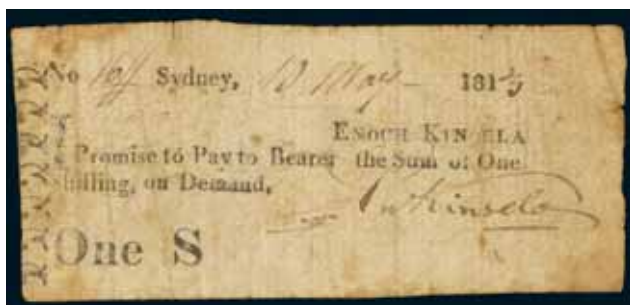 No Sydney, 10 May 181
ENOCH KINSELA
Promise to Pay to Bearer the Sum of One
Shilling, on Demand,
Kinsela
One S